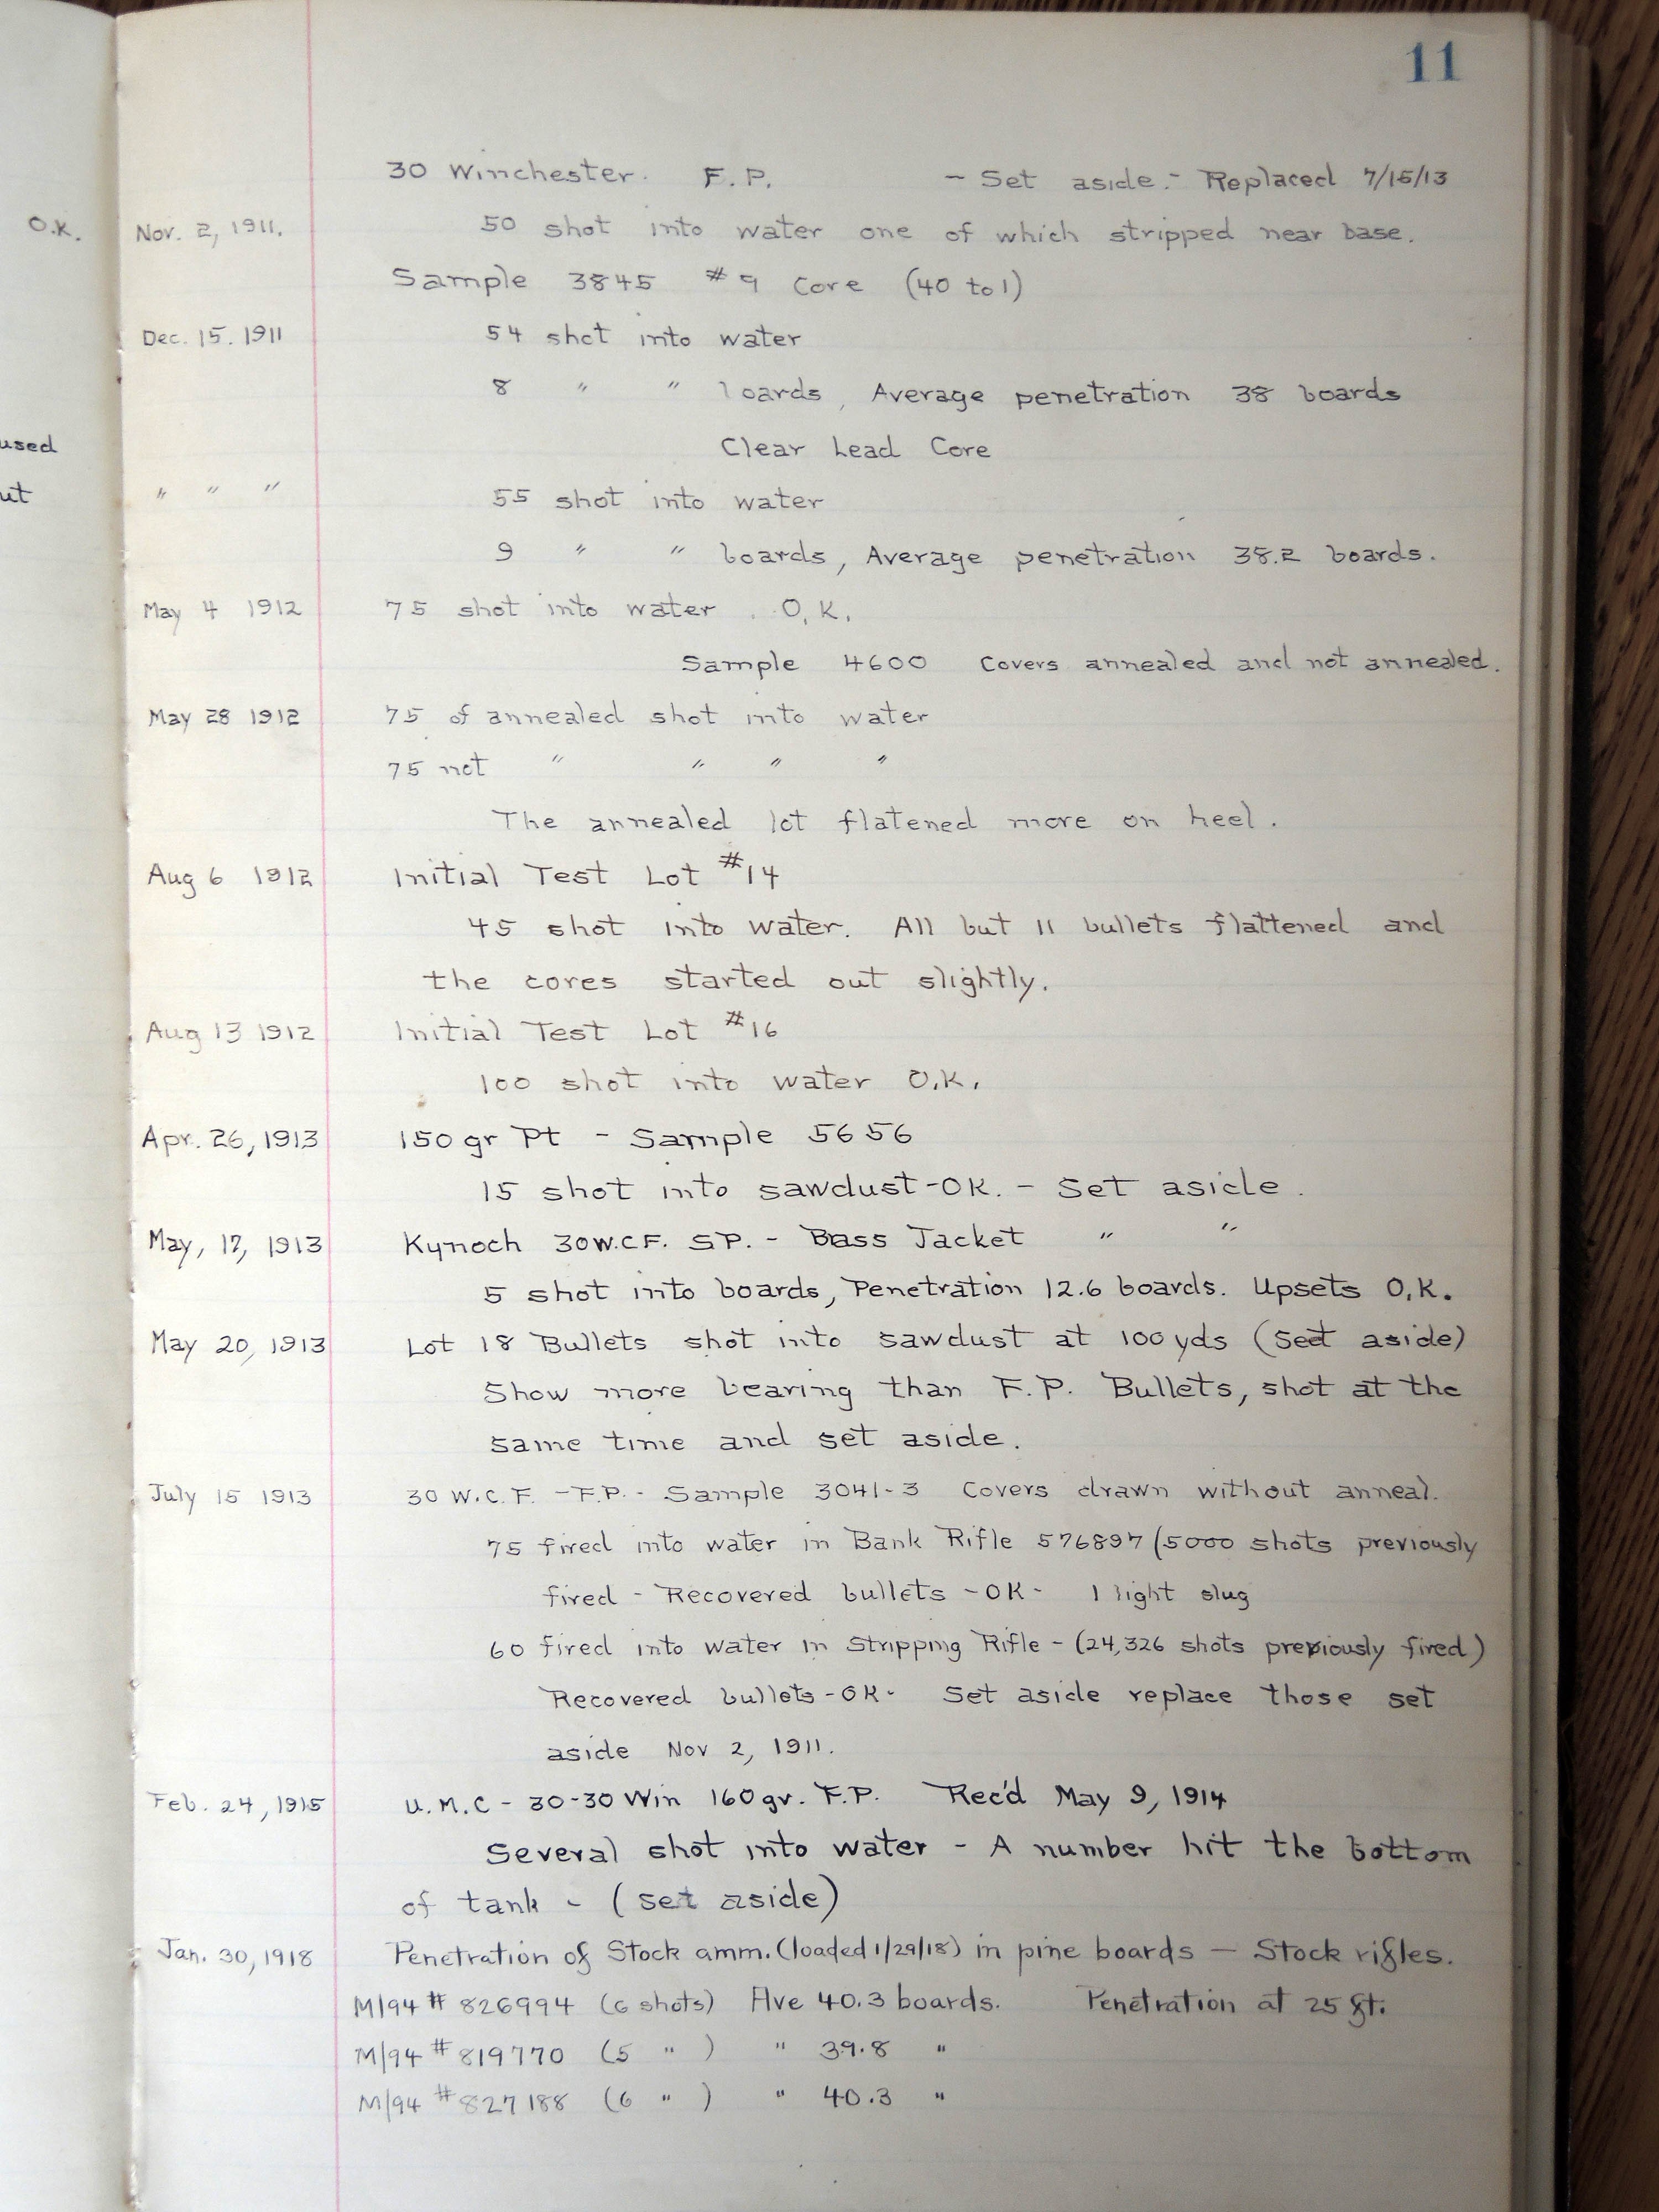 11
30 Winchester. F.P. - Set aside.- Replaced 7/15/13
O.K. Nov. 2, 1911. 50 shot into water one of which stripped near base.
Sample 3845 #9 Core (40 to 1)
Dec. 15. 1911 54 shot into water
8 " " boards, Average penetration 38 boards
used Clear Lead Core
ut " " " 55 shot into water
9 " " boards, Average penetration 38.2 boards.
May 4 1912 75 shot into water. O.K.
Sample 4600 Covers annealed and not annealed.
May 28 1912 75 of annealed shot into water
75 not " " " "
The annealed lot flatened more on heel.
Aug 6 1912 Initial Test Lot #14
45 shot into water. All but 11 bullets flattened and
the cores started out slightly.
Aug 13 1912 Initial Test Lot #16
100 shot into water O.K.
Apr. 26, 1913 150 gr Pt - Sample 5656
15 shot into sawdust-OK. - Set aside.
May, 17, 1913 Kynoch 30 W.C.F. SP. - Bass Jacket " "
5 shot into boards, Penetration 12.6 boards. Upsets O.K.
May 20, 1913 Lot 18 Bullets shot into sawdust at 100 yds (Set aside)
Show more bearing than F.P. Bullets, shot at the
same time and set aside.
July 15 1913 30 W.C.F. - F.P. - Sample 3041-3 Covers drawn without anneal.
75 fired into water in Bank Rifle 576897 (5000 shots previously
fired - Recovered bullets - OK - 1 light slug
60 fired into water in Stripping Rifle - (24,326 shots previously fired)
Recovered bullets - OK - Set aside replace those set
aside Nov 2, 1911.
Feb. 24, 1915 U.M.C - 30-30 Win 160 gr. F.P. Rec'd May 9, 1914
Several shot into water - A number hit the bottom
of tank - (set aside)
Jan. 30, 1918 Penetration of Stock amm. (loaded 1/29/18) in pine boards — Stock rifles.
M/94 # 826994 (6 shots) Ave 40.3 boards. Penetration at 25 ft.
M/94 # 819770 (5 " ) " 39.8 "
M/94 # 827188 (6 " ) " 40.3 "